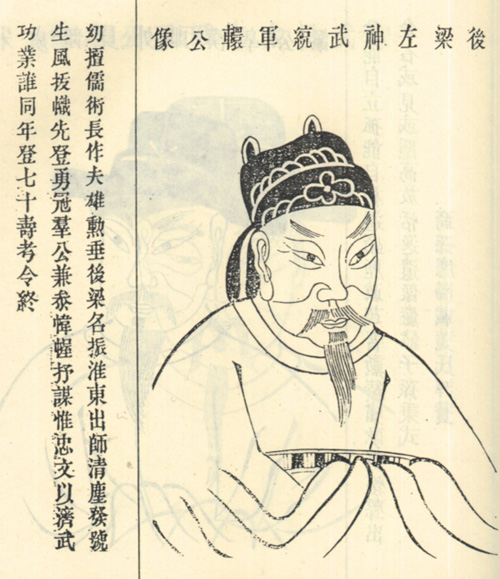 後梁左神武綂軍公像
幼擅儒術長作夫雄勲垂後梁名振淮東出師清塵發號
生風拔幟先登勇冠羣公兼叅幃幄抒謀惟忠文以濟武
功業誰同年登七十壽考令終